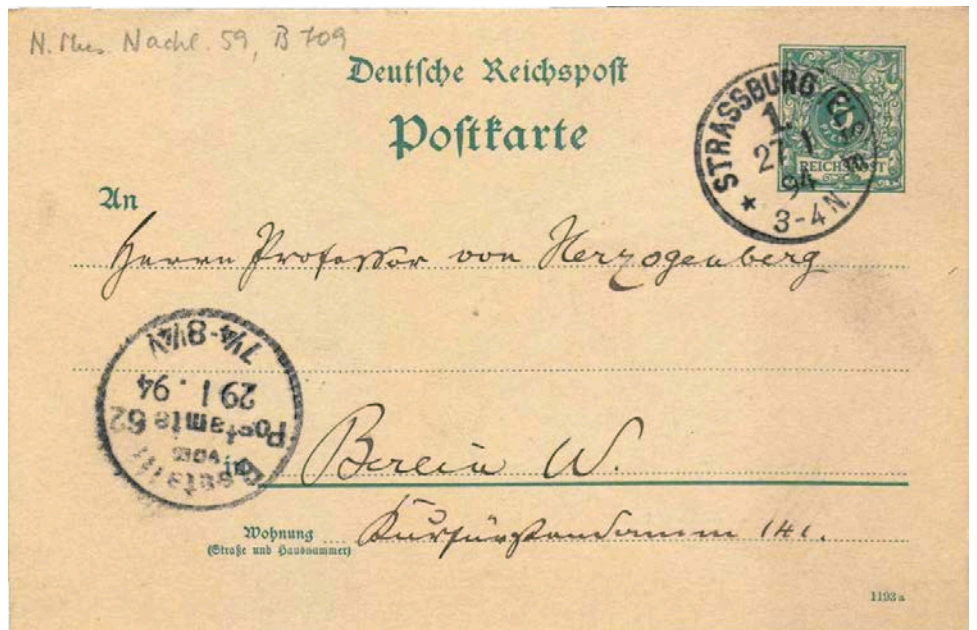 N. Mus. Nachl. 59, B 709
Deutsche Reichspost
Postkarte
STRASSBURG (ELS)
1.
27 1
94
* 3-4 N.
5
REICHSPOST
An
Herrn Professor von Herzogenberg
Bestellt
vom
Postamte 62
29 1. 94
7¼-8¼V
in
Berlin W.
Wohnung Kurfürstendamm 141.
(Straße und Hausnummer)
1193 a